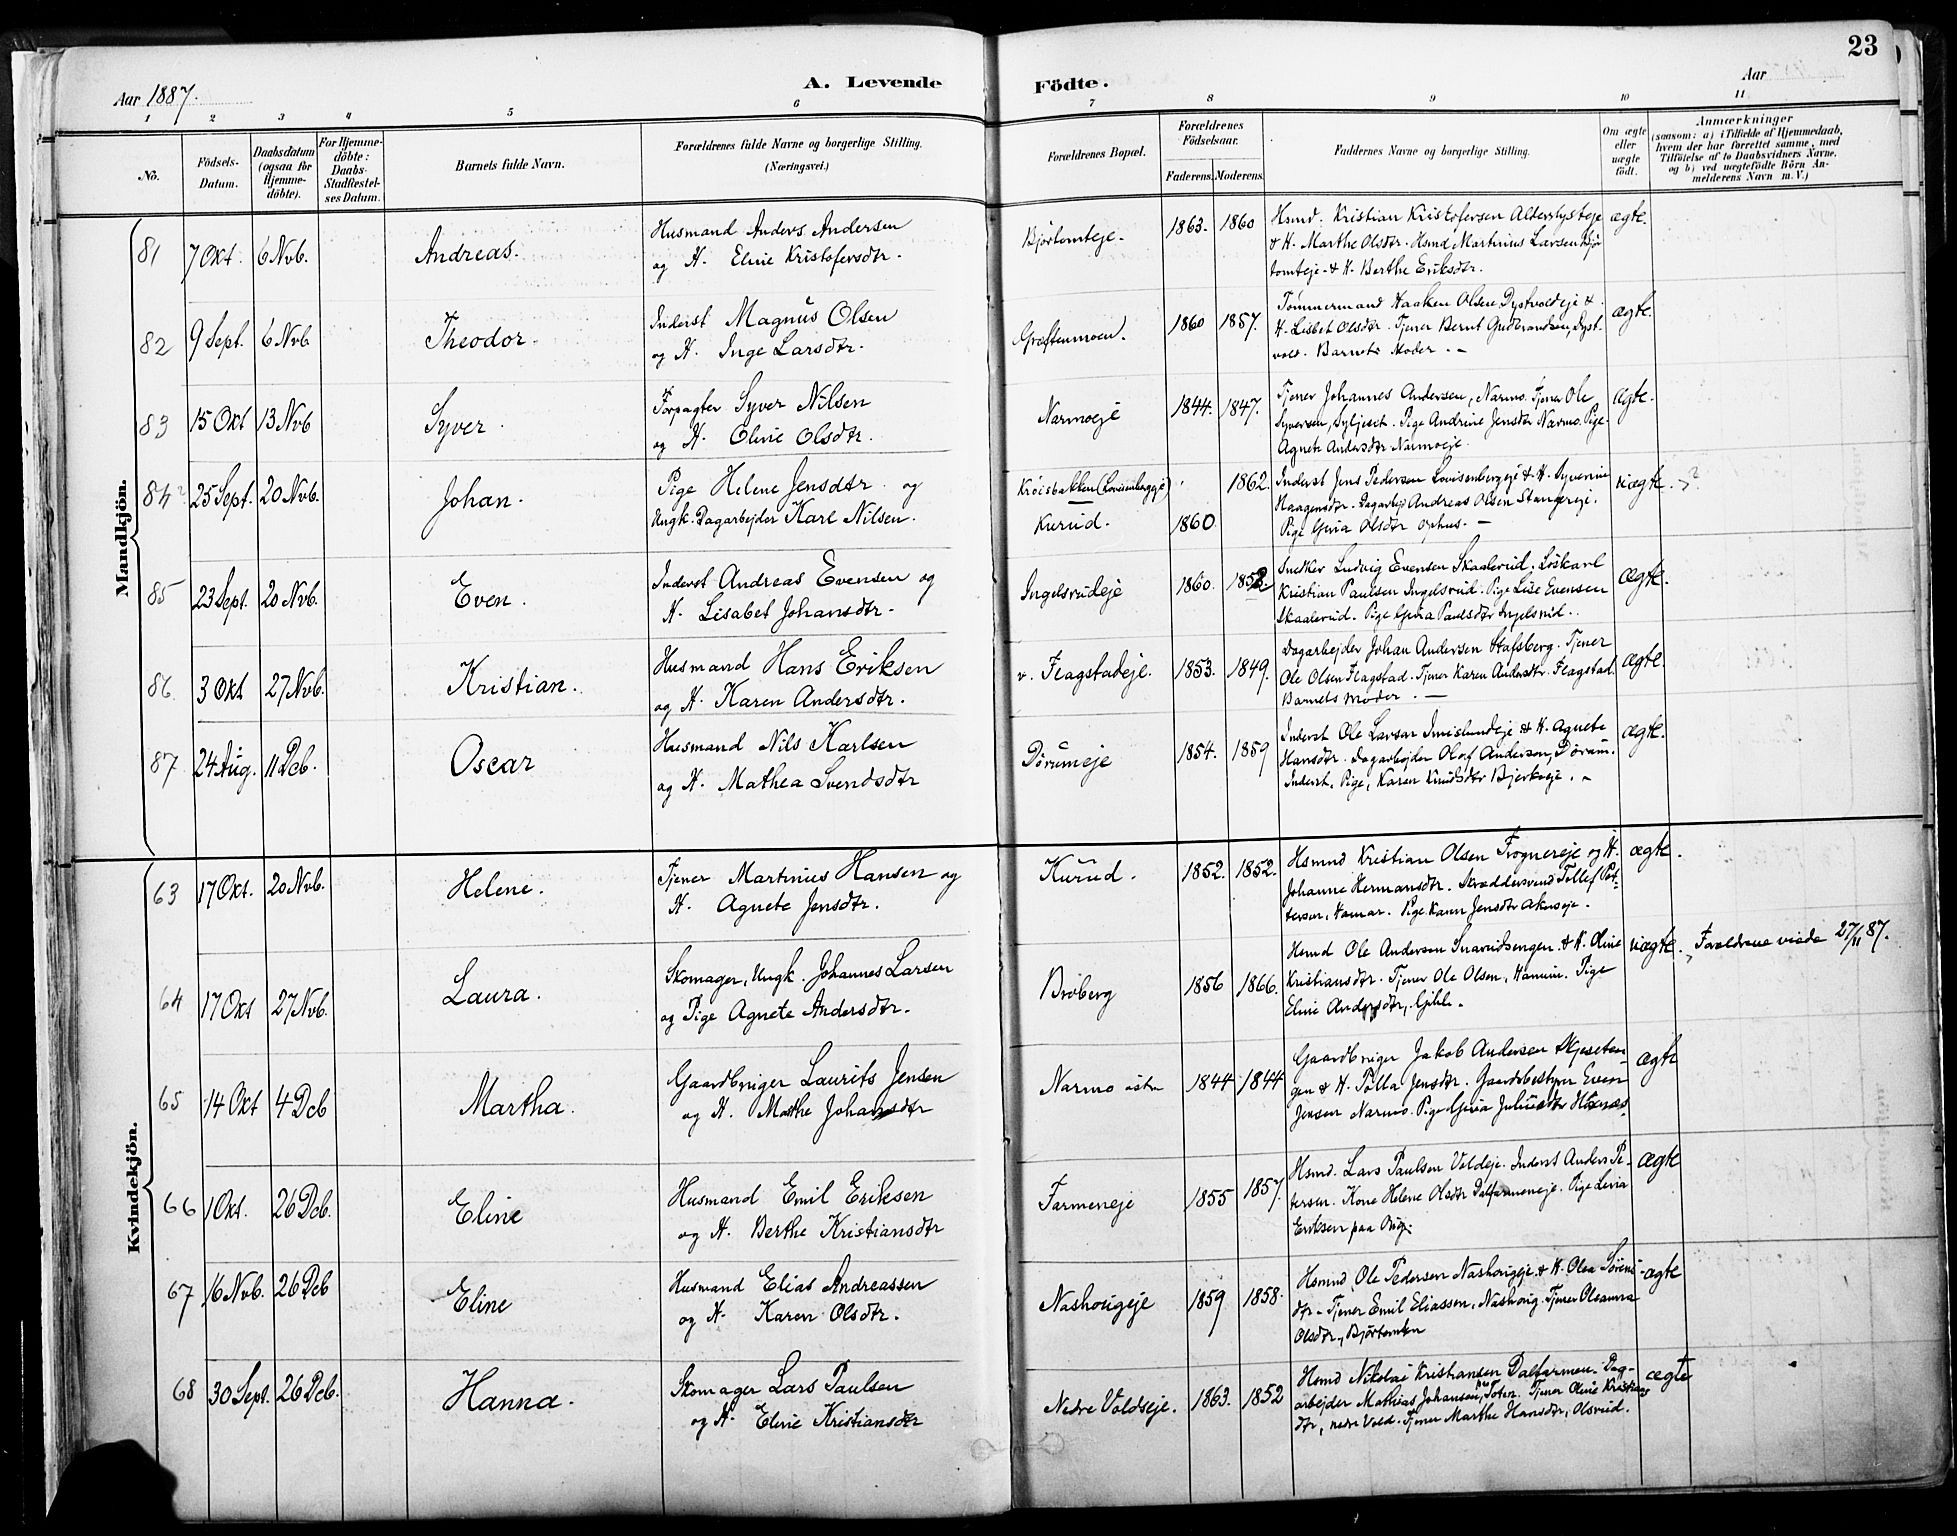 23
Aar 1887.
A. Levende Födte.
Aar
1 2 3 4 5 6 7 8 9 10 11
No.
Födsels-Datum.
Daabsdatum (ogsaa for Hjemme-döbte).
For Hjemme-döbte: Daabs-Stadfæstel-ses Datum.
Barnets fulde Navn.
Forældrenes fulde Navne og borgerlige Stilling.
(Næringsvei.)
Forældrenes Bopæl.
Forældrenes Födselsaar.
Faderens. Moderens.
Faddernes Navne og borgerlige Stilling.
Om ægte eller uægte födt.
Anmærkninger
(saasom: a) i Tilfælde af Hjemmedaab, hvem der har forrettet samme, med Tilföielse af to Daabsvidners Navne, og b) ved uægtefödte Börn An-melderens Navn m. V.)
Mandkjön.
81 7 Okt. 6 Nvb. Andreas.
Husmand Anders Andersen
og H. Eline Kristofersdtr.
Bjørtomteje. 1863. 1860
Hsmd. Kristian Kristofersen Alderslysteje
& H. Marthe Olsdtr. Hsmd Martinius Larsen Bjør
tomteje & H. Berthe Eriksdtr.
ægte.
82 9 Sept. 6 Nvb Theodor.
Inderst Magnus Olsen
og H. Inge Larsdtr.
Græftenmoen. 1860 1857.
Tømmermand Haaken Olsen, Dystvoldeje &
H. Lisbet Olsdtr. Tjener Bernt Gudbrandsen, Dyst-
vold. Barnets Moder. -
ægte.
83 15 Okt 13 Nvb Syver.
Forpagter Syver Nilsen
og H. Oline Olsdtr.
Narmoeje 1844. 1847.
Tjener Johannes Andersen, Narmo. Tjener Ole
Syversen, Syljeset. Pige Andrine Jensdtr Narmo. Pige
Agnete Andersdtr Narmoeje.
ægte.
84? 25 Sept. 20 Nvb. Johan.
Pige Helene Jensdtr. og
Ungk. Dagarbejder Karl Nilsen.
Krøisbakken (Lovisenbergeje)
Kurud. 1862. 1860
Inderst Jens Pedersen Lovisenbergeje & H. Syverine
Haagensdtr. Dagarbejd Andreas Olsen Stangereje.
Pige Gina Olsdtr Ophus. -
uægte. ?
85 23 Sept. 20 Nvb. Even.
Inderst Andreas Evensen og
H. Lisabet Johansdtr.
Ingelsrudeje 1860. 1852.
Snedker Ludvig Evensen Skaalerud. Løskarl
Kristian Paulsen Ingelsrud. Pige Lise Evensen
Skaalerud. Pige Gina Paulsdtr Ingelsrud.
Ægte.
86 3 Okt 27 Nvb. Kristian.
Husmand Hans Eriksen
og H. Karen Andersdtr.
v. Flagstadeje. 1853. 1849.
Dagarbejder Johan Andersen Stafsberg. Tjener
Ole Olsen Flagstad. Tjener Karen Andersdtr. Flagstad.
Barnets Moder. -
ægte.
87 24 Aug. 11 Dcb. Oscar
Husmand Nils Karlsen
og H. Mathea Svendsdtr
Dørumeje 1854. 1859
Inderst Ole Larsen Imislundeje & H. Agnete
Hansdtr. Dagarbejder Olaf Andersen, Dørum.
Inderst. Pige, Karen Knudsdtr Bjerkeeje. -
ægte.
Kvindekjön.
63 17 Okt. 20 Nvb. Helene.
Tjener Martinius Hansen og
H. Agnete Jensdtr.
Kurud. 1852. 1852.
Hsmnd Kristian Olsen Frognereje og H.
Johanne Hermansdtr. Skræddersvend Tollef Pet-
tersen, Hamar. Pige Karen Jensdtr Akerseje.
ægte.
64 17 Okt 27 Nvb. Laura.
Skomager, Ungk. Johannes Larsen
og Pige Agnete Andersdtr.
Broberg 1856 1866.
Hsmd Ole Andersen Snarudsengen & H. Oline
Kristiansdtr. Tjener Ole Olsen, Hamum. Pige
Eline Andersdtr,
uægte. Forældrene viede 27/11 87.
65 14 Okt 4 Dcb Martha.
Gaardbruger Laurits Jensen
og H. Marthe Johansdtr
Narmo østre 1844 1844
Gaardbruger Jakob Andersen Skjeseten-
gen & H. Polla Jensdtr. Gaardsbestyrer Even
Jensen Narmo. Pige Gina Juliusdtr
ægte
66 1 Okt. 26 Dcb. Eline
Husmand Emil Eriksen
og H. Berthe Kristiansdtr
Farmeneje 1855 1857.
Hsmd. Lars Paulsen Voldeje. Inderst Anders Pe-
tersen. Kone Helene Olsdtr Dalfarmeneje. Pige Lovia
Eriksen paa
ægte
67 16 Nvb. 26 Dcb Eline
Husmand Elias Andreassen
og H. Karen Olsdtr.
Nashougeje 1859 1858.
Hsmnd Ole Pedersen Nashougeje & H. Olea Sørens
dtr. Tjener Emil Eliassen, Nashoug. Tjener Oleanna
Olsdtr, Bjørtomten
ægte
68 30 Sept. 26 Dcb. Hanna.
Skomager Lars Paulsen
og H. Eline Kristiansdtr
Nedre Voldseje. 1863. 1852
Hsmd Nikolai Kristiansen Dalfarmen. Dag-
arbejder Mathias Johansen, Toten. Tjener Oline Kristians
dtr, nedre Vold. Tjener Marthe Hansdtr, Olsrud.
ægte